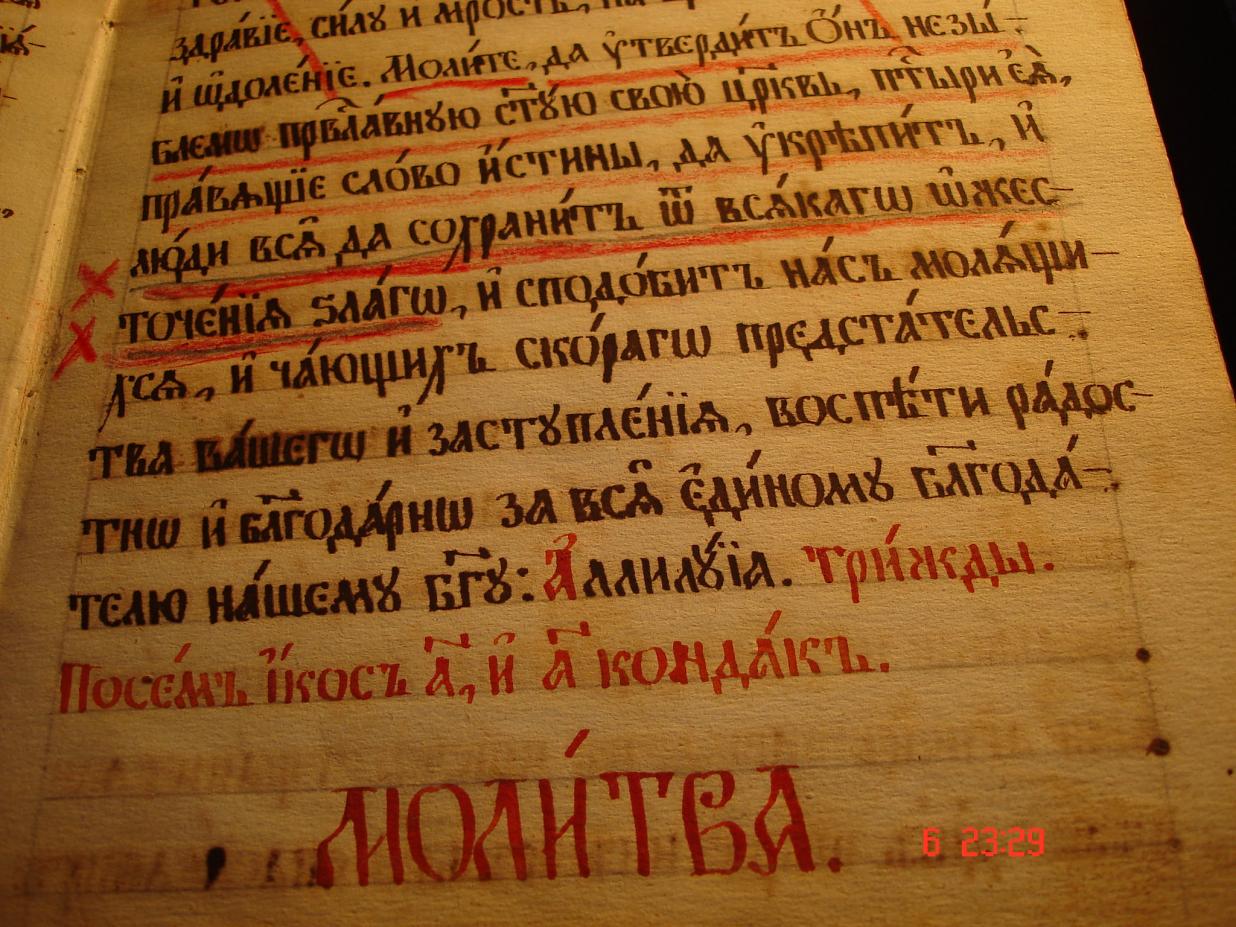 здра́вїе, си́лꙋ и мꙋ́дрость,
и҆ ѡ҆доле́нїе. Моли́те, да ᲂу҆тверди́тъ Ѻ҆́нъ незы́-
блемѡ правосла́внꙋю ст҃ꙋ́ю свою̀ цр҃ковь, па́стыри єѧ̀,
пра́вѧщїе сло́во и҆́стины, да ᲂу҆крѣпи́тъ, и҆
лю́ди всѧ̑ да сохрани́тъ ѿ всѧ́кагѡ ѡ҆жес-
точе́нїѧ ѕла́гѡ, и҆ сподо́битъ на́съ молѧ́щи-
хсѧ, и҆ ча́ющихъ ско́рагѡ предста́тельс-
тва ва́шегѡ и҆ застꙋпле́нїѧ, воспѣ́ти ра́дос-
тнѡ и҆ бл҃года́рнѡ за всѧ̑ є҆ди́номꙋ бл҃года́-
телю на́шемꙋ бг҃ꙋ: А҆ллилꙋ́їа. три́жды.
Посе́мъ і҆́косъ а҃, и҆ а҃ конда́къ.
МОЛИ́ТВА.
6 23:29